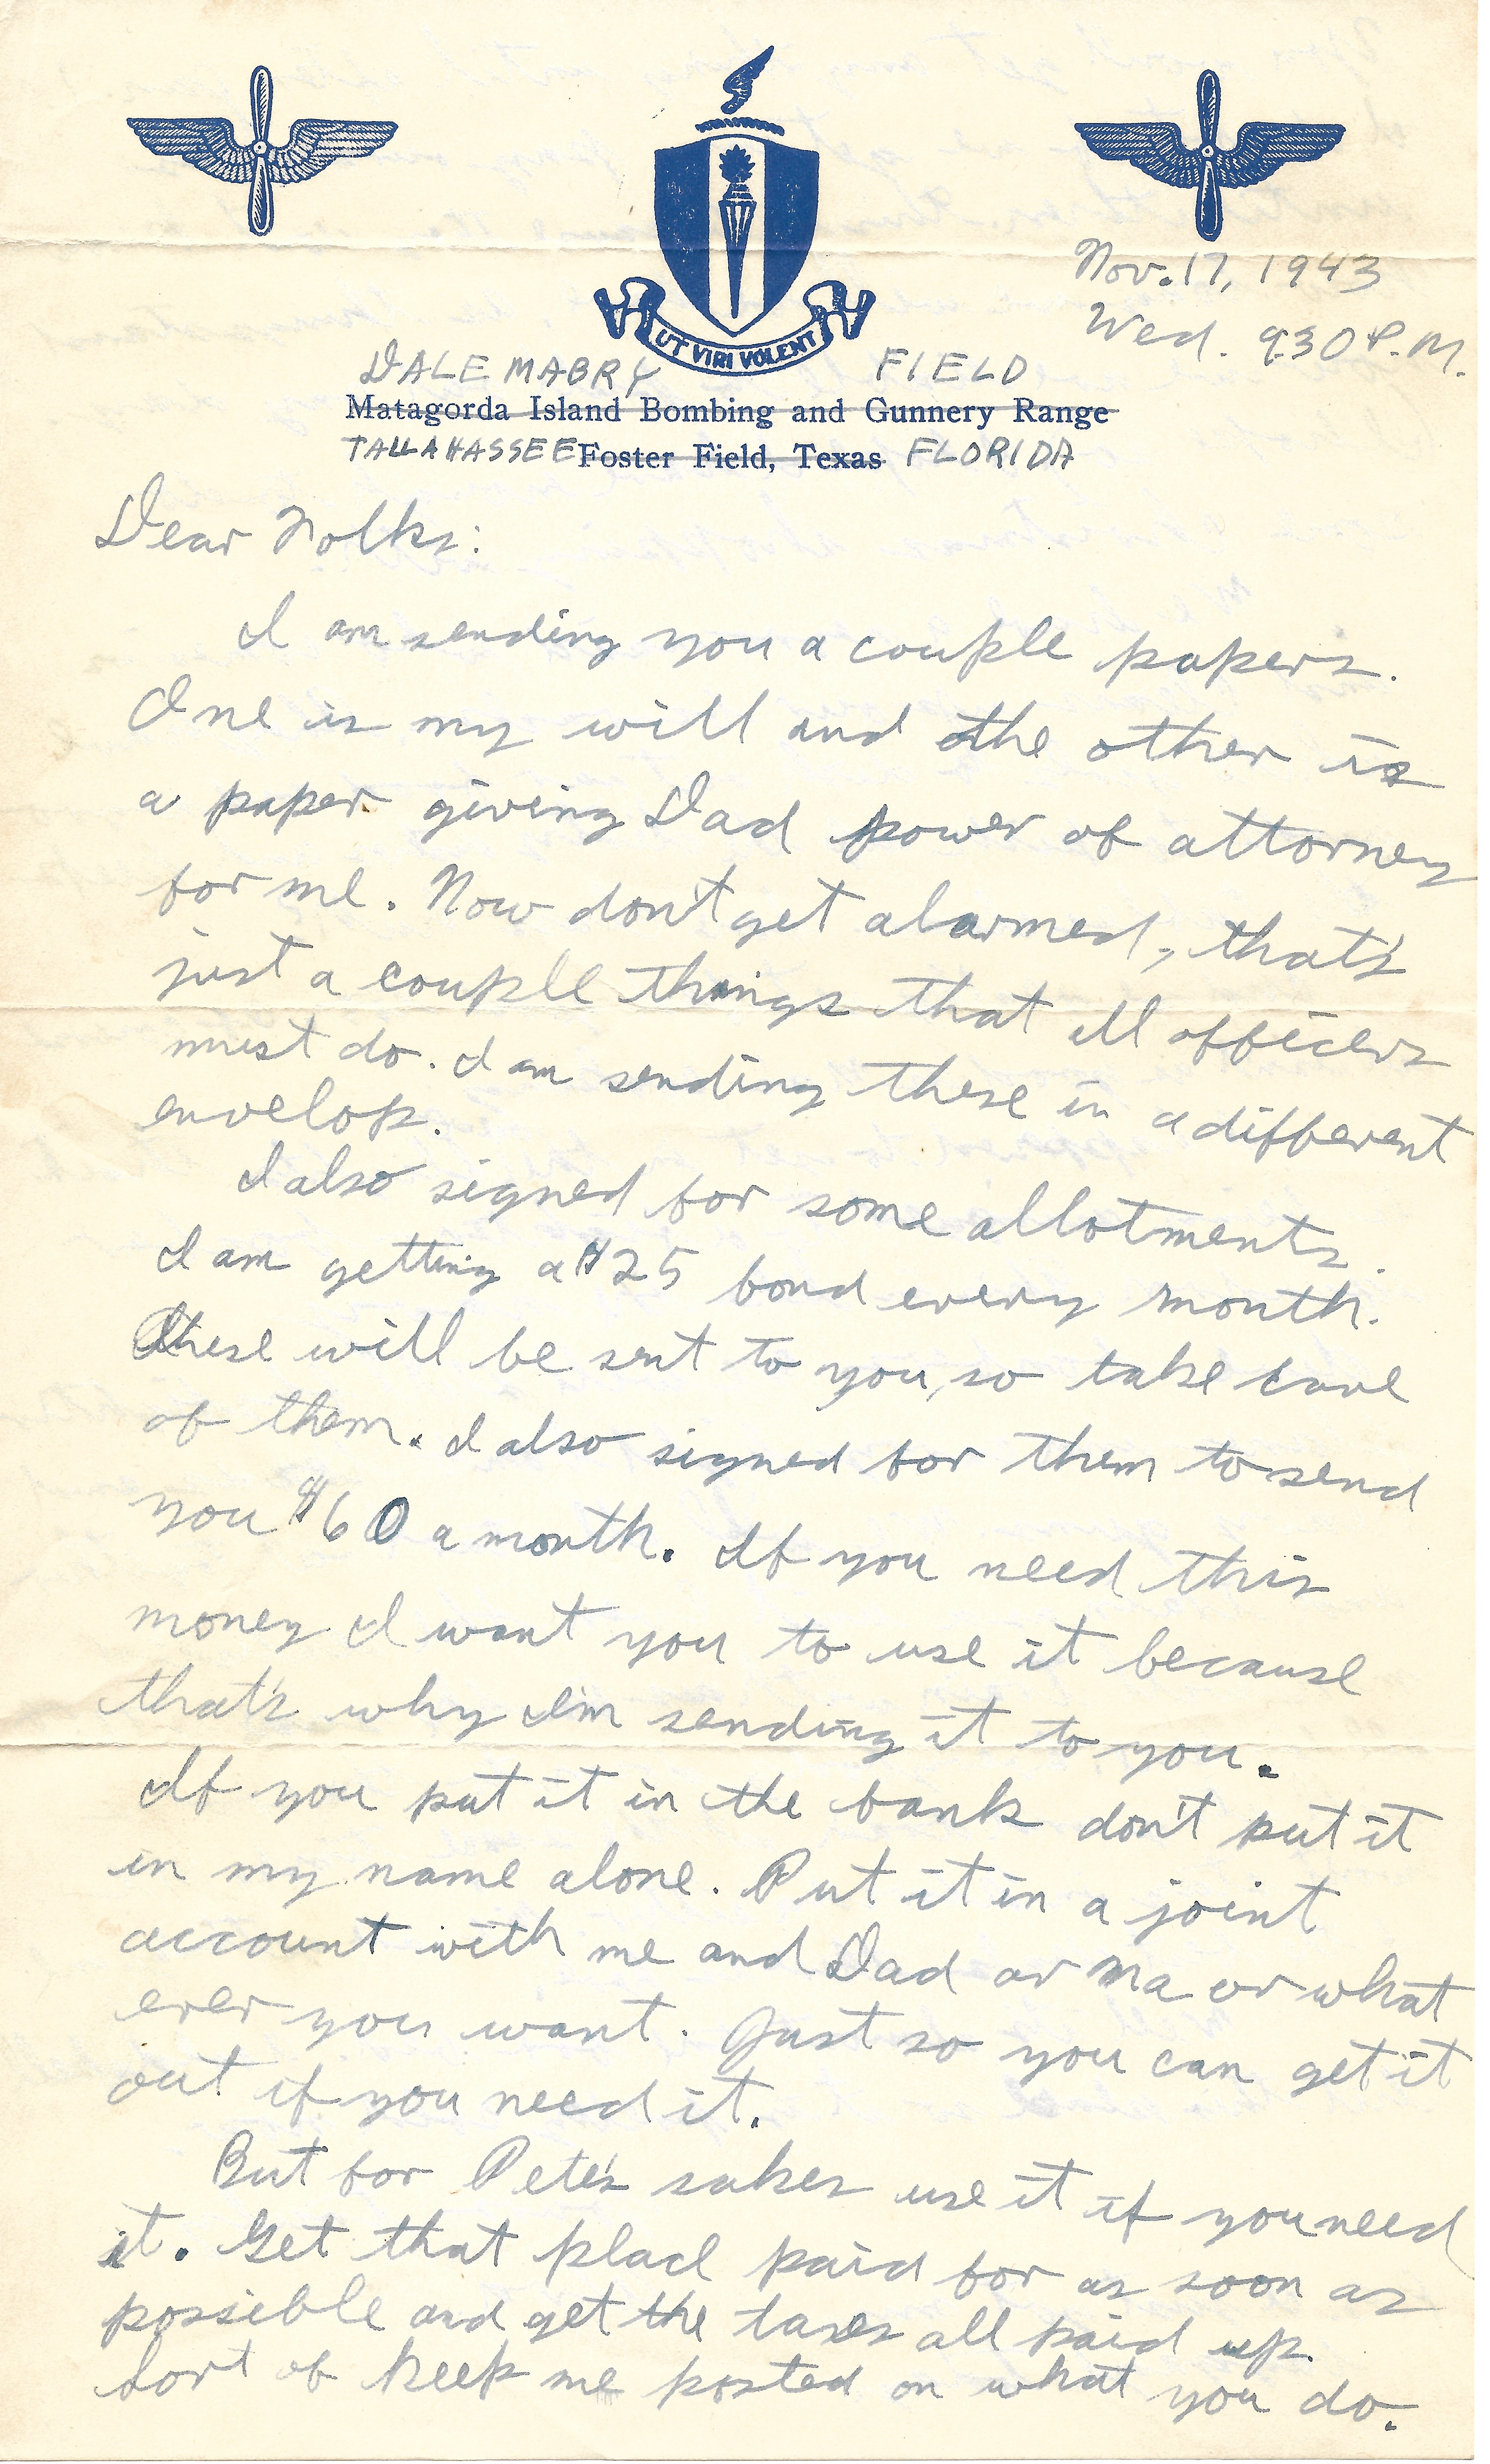 UT VIRI VOLENT
Nov. 17, 1943
Wed. 930 P.M.
DALE MABRY FIELD
Matagorda Island Bombing and Gunnery Range
TALLAHASSEE Foster Field, Texas FLORIDA
Dear Folks:
I am sending you a couple papers.
One is my will and the other is
a paper giving Dad power of attorney
for me. Now don't get alarmed, that's
just a couple things that all officers
must do. I am sending these in a different
envelop.
I also signed for some allotments.
I am getting a $25 bond every month.
These will be sent to you, so take care
of them. I also signed for them to send
you $60 a month. If you need this
money I want you to use it because
that's why I'm sending it to you.
If you put it in the bank don't put it
in my name alone. Put it in a joint
account with me and Dad or Ma or what
ever you want. Just so you can get it
out if you need it.
But for Pete's sakes use it if you need
it. Get that place paid for as soon as
possible and get the taxes all paid up.
Sort of keep me posted on what you do.